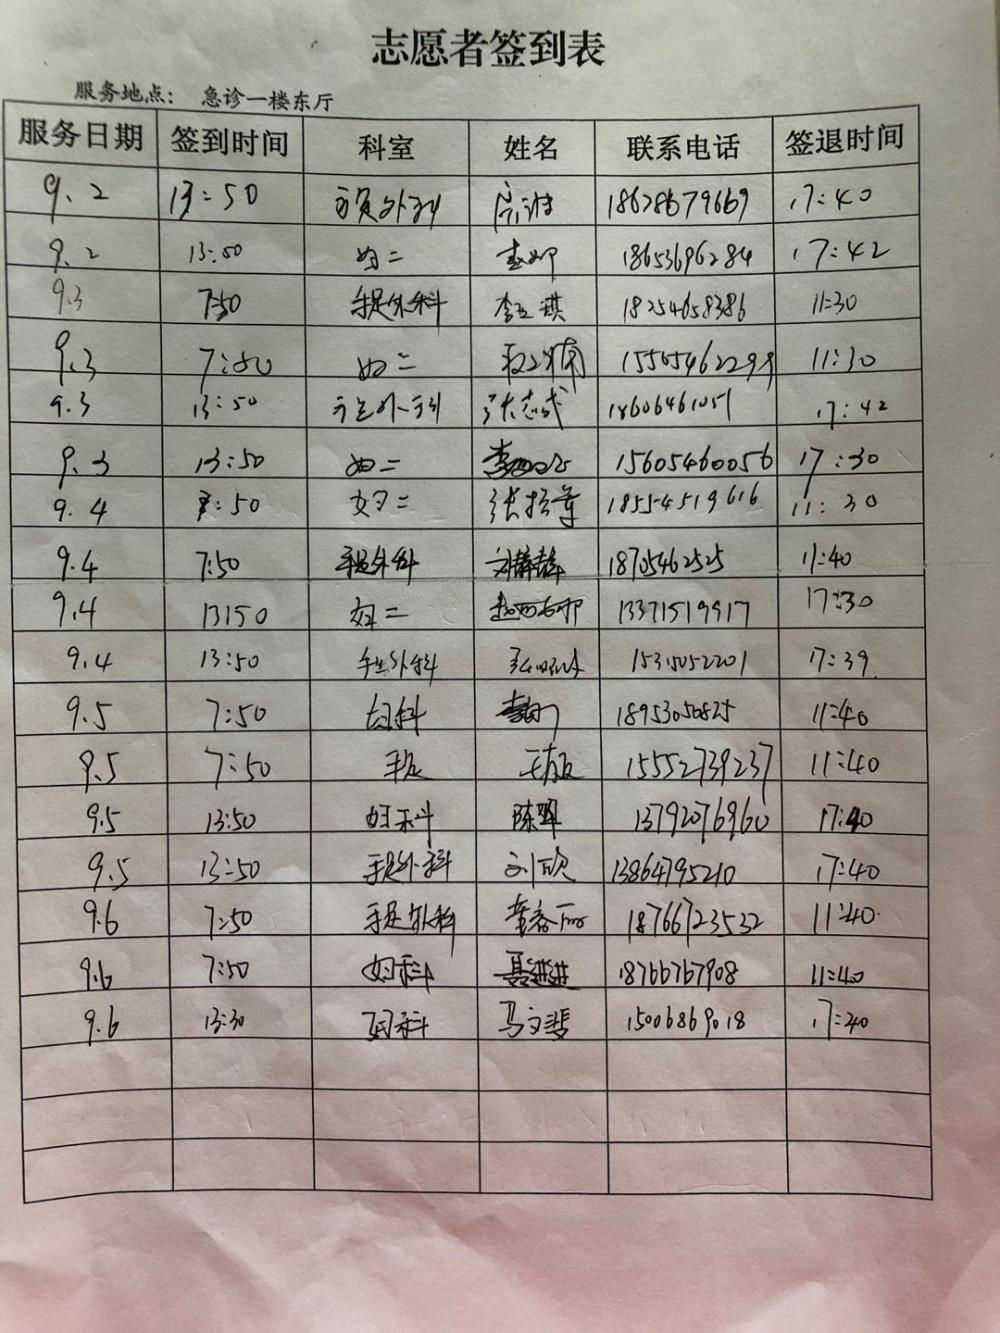 志愿者签到表
服务地点： 急诊一楼东厅
服务日期 签到时间 科室 姓名 联系电话 签退时间
9.2 13:50 17:40
9.2 13:50 妇二 18653696284 17:42
9.3 7:50 手足外科 18254658386 11:30
9.3 7:50 妇二 11:30
9.3 13:50 张志成 18606461051 17:42
9.3 13:50 妇二 15605460056 17:30
9.4 7:50 妇二 18554519616 11:30
9.4 7:50 手足外科 刘静静 18705462525 11:40
9.4 13:50 妇二 13371519917 17:30
9.4 13:50 手足外科 15315052201 17:39
9.5 7:50 妇科 18953050825 11:40
9.5 7:50 手足 15552739237 11:40
9.5 13:50 妇科 13792076960 17:40
9.5 13:50 手足外科 刘欣 13864795210 17:40
9.6 7:50 手足外科 18766723532 11:40
9.6 7:50 妇科 聂进进 18766767908 11:40
9.6 13:30 妇科 马文斐 15006869018 17:40